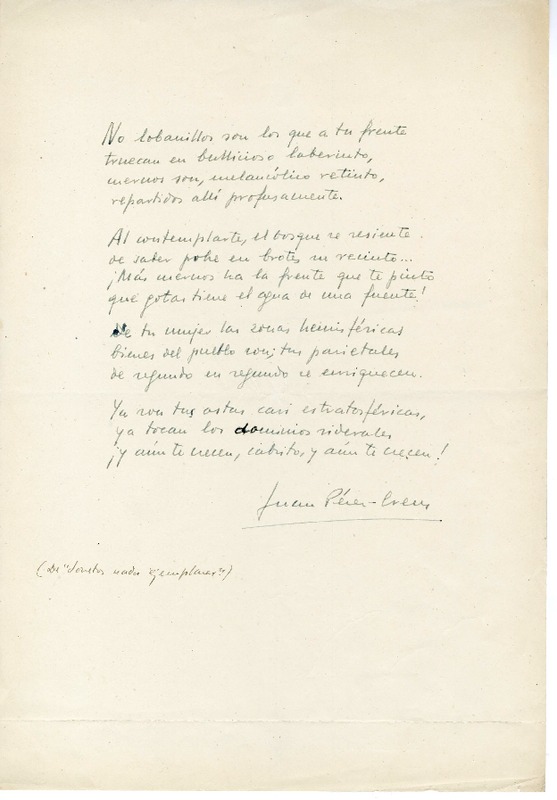 No lobanillos son los que a tu frente
truecan en bullicioso laberinto,
cuernos son, melancólico retinto,
repartidos allí profusamente.
Al contemplarte, el bosque se resiente
de saber pobre en brotes su recinto...
¡Más cuernos ha la frente que te pinto
que gotas tiene el agua de una fuente!
De tu mujer las zonas hemisféricas
bienes del pueblo son; tus parietales
de segundo en segundo se enriquecen.
Ya son tus astas casi estratosféricas,
ya tocan los dominios siderales
¡y aún te crecen, cabrito, y aún te crecen!
Juan Pérez-Creus
(De "Sonetos nada ejemplares")